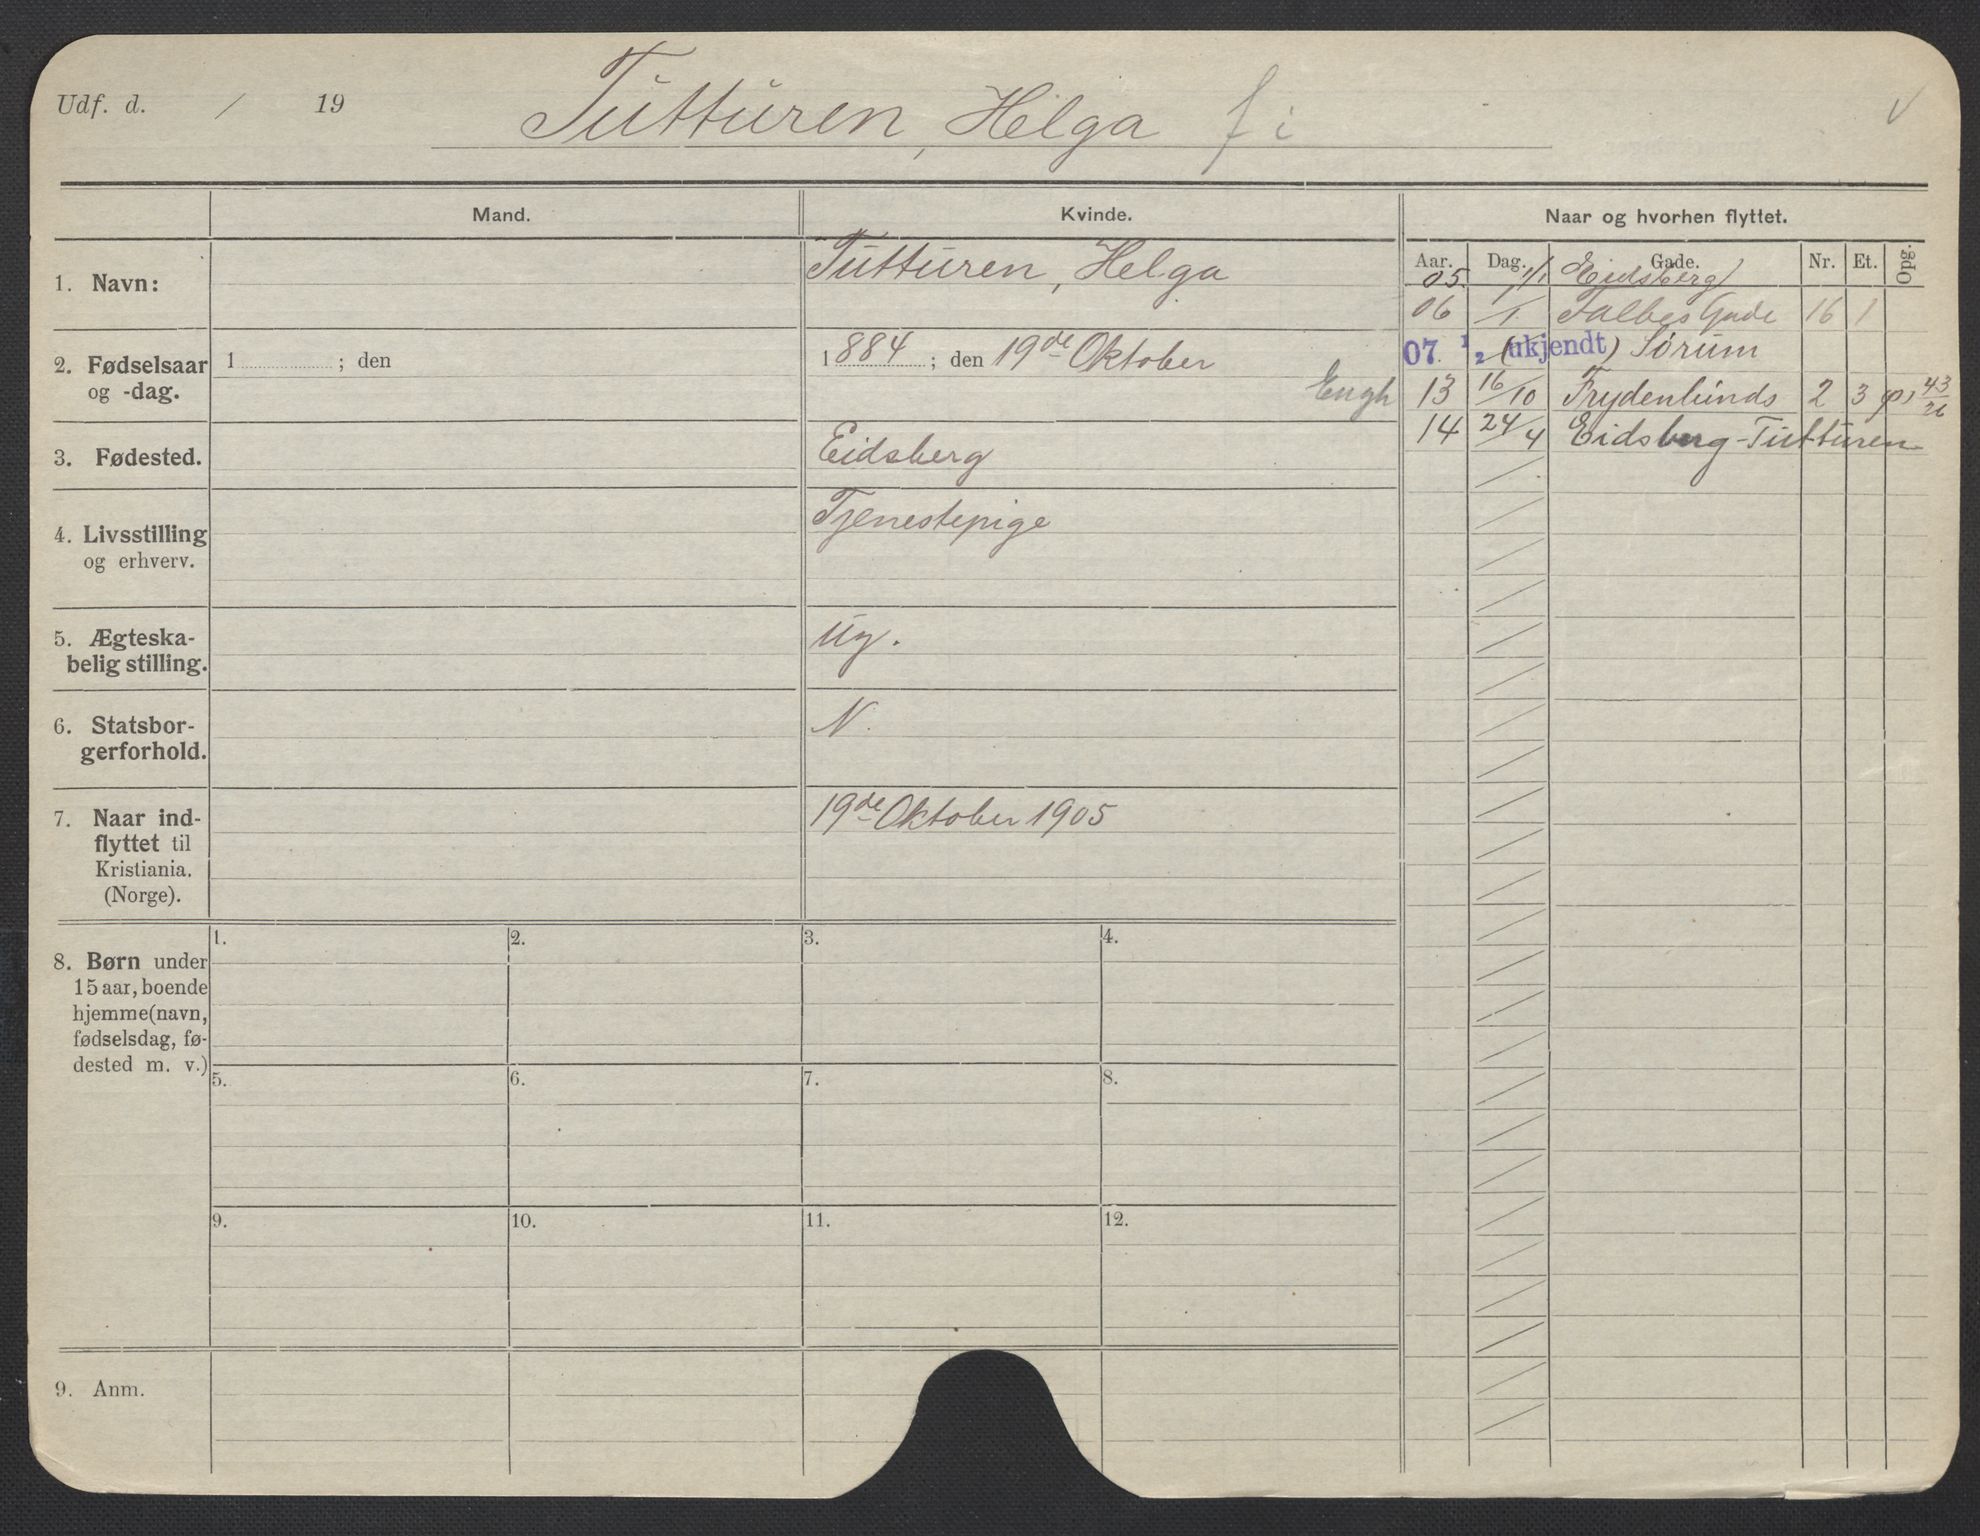 Udf. d. / 19 Tutturen, Helga f i
Mand. Kvinde. Naar og hvorhen flyttet.
Aar. Dag. Gade. Nr. Et. Opg.
1. Navn: Tutturen, Helga
05. 1/1 Eidsberg
06 /1 Falbes Gade 16 1
2. Fødselsaar 1 ; den 1884 ; den 19de Oktober
og -dag.
07. 1/2 (ukjendt) Sörum
Engh 13 16/10 Frydenlunds 2 3 43/26
14 24/4 Eidsberg-Tutturen
3. Fødested. Eidsberg
4. Livsstilling Tjenestepige
og erhverv.
5. Ægteska-
belig stilling. ug.
6. Statsbor- N.
gerforhold.
7. Naar ind- 19de Oktober 1905
flyttet til
Kristiania.
(Norge).
1. 2. 3. 4.
8. Børn under
15 aar, boende
hjemme (navn,
fødselsdag, fø-
dested m. v.)
5. 6. 7. 8.
9. 10. 11. 12.
9. Anm.